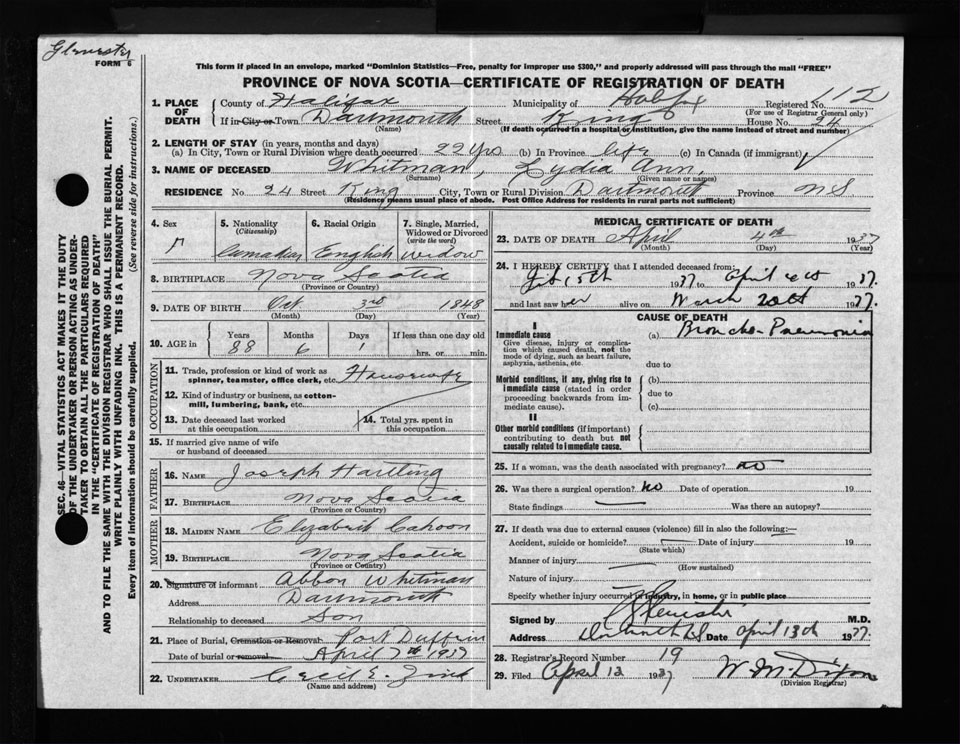 FORM 6
This form if placed in an envelope, marked "Dominion Statistics—Free, penalty for improper use $300," and properly addressed will pass through the mail "FREE"
PROVINCE OF NOVA SCOTIA—CERTIFICATE OF REGISTRATION OF DEATH
SEC. 46—VITAL STATISTICS ACT MAKES IT THE DUTY
OF THE UNDERTAKER OR PERSON ACTING AS UNDER-
TAKER TO OBTAIN ALL THE PARTICULARS REQUIRED
IN THE "CERTIFICATE OF REGISTRATION OF DEATH"
AND TO FILE THE SAME WITH THE DIVISION REGISTRAR WHO SHALL ISSUE THE BURIAL PERMIT.
WRITE PLAINLY WITH UNFADING INK. THIS IS A PERMANENT RECORD.
Every item of information should be carefully supplied. (See reverse side for instructions.)
1. PLACE OF DEATH County of Halifax Municipality of Halifax Registered No. 112
(For use of Registrar General only)
If in City or Town Dartmouth Street King House No. 24
(Name) (If death occurred in a hospital or institution, give the name instead of street and number)
2. LENGTH OF STAY (in years, months and days)
(a) In City, Town or Rural Division where death occurred 22 yrs (b) In Province life (c) In Canada (if immigrant)
3. NAME OF DECEASED Whitman, Lydia Ann,
(Surname) (Given name or names)
RESIDENCE No. 24 Street King City, Town or Rural Division Dartmouth Province N S
(Residence means usual place of abode. Post Office Address for residents in rural parts not sufficient)
4. Sex 5. Nationality (Citizenship) 6. Racial Origin 7. Single, Married, Widowed or Divorced (write the word)
Canadian English Widow
8. BIRTHPLACE Nova Scotia
(Province or Country)
9. DATE OF BIRTH Oct 3rd 1848
(Month) (Day) (Year)
10. AGE in Years Months Days If less than one day old
88 6 1 hrs. or min.
OCCUPATION
11. Trade, profession or kind of work as spinner, teamster, office clerk, etc. Housewife
12. Kind of industry or business, as cotton-mill, lumbering, bank, etc.
13. Date deceased last worked at this occupation 14. Total yrs. spent in this occupation
15. If married give name of wife or husband of deceased
FATHER
16. NAME Joseph Hartling
17. BIRTHPLACE Nova Scotia
(Province or Country)
MOTHER
18. MAIDEN NAME Elizabeth Cahoon
19. BIRTHPLACE Nova Scotia
(Province or Country)
20. Signature of informant Abbon Whitman
Address Dartmouth
Relationship to deceased Son
21. Place of Burial, Cremation or Removal Port Dufferin
Date of burial or removal April 7th 1937
22. UNDERTAKER Cecil E. Zink
(Name and address)
MEDICAL CERTIFICATE OF DEATH
23. DATE OF DEATH April 4th 1937
(Month) (Day) (Year)
24. I HEREBY CERTIFY that I attended deceased from:
1937 to April 1937.
and last saw her alive on March 20th 1937.
CAUSE OF DEATH
I
Immediate cause (a) Broncho-Pneumonia
Give disease, injury or complication which caused death, not the mode of dying, such as heart failure, asphyxia, asthenia, etc. due to
Morbid conditions, if any, giving rise to immediate cause (stated in order proceeding backwards from immediate cause). (b) due to (c)
II
Other morbid conditions (if important) contributing to death but not causally related to immediate cause.
25. If a woman, was the death associated with pregnancy? no
26. Was there a surgical operation? no Date of operation 19
State findings Was there an autopsy?
27. If death was due to external causes (violence) fill in also the following:—
Accident, suicide or homicide? Date of injury 19
(State which)
Manner of injury
(How sustained)
Nature of injury
Specify whether injury occurred in industry, in home, or in public place
Signed by M.D.
Address Date April 13th 1937.
28. Registrar's Record Number 19
29. Filed April 13 1937 W. M. Dixon
(Division Registrar)